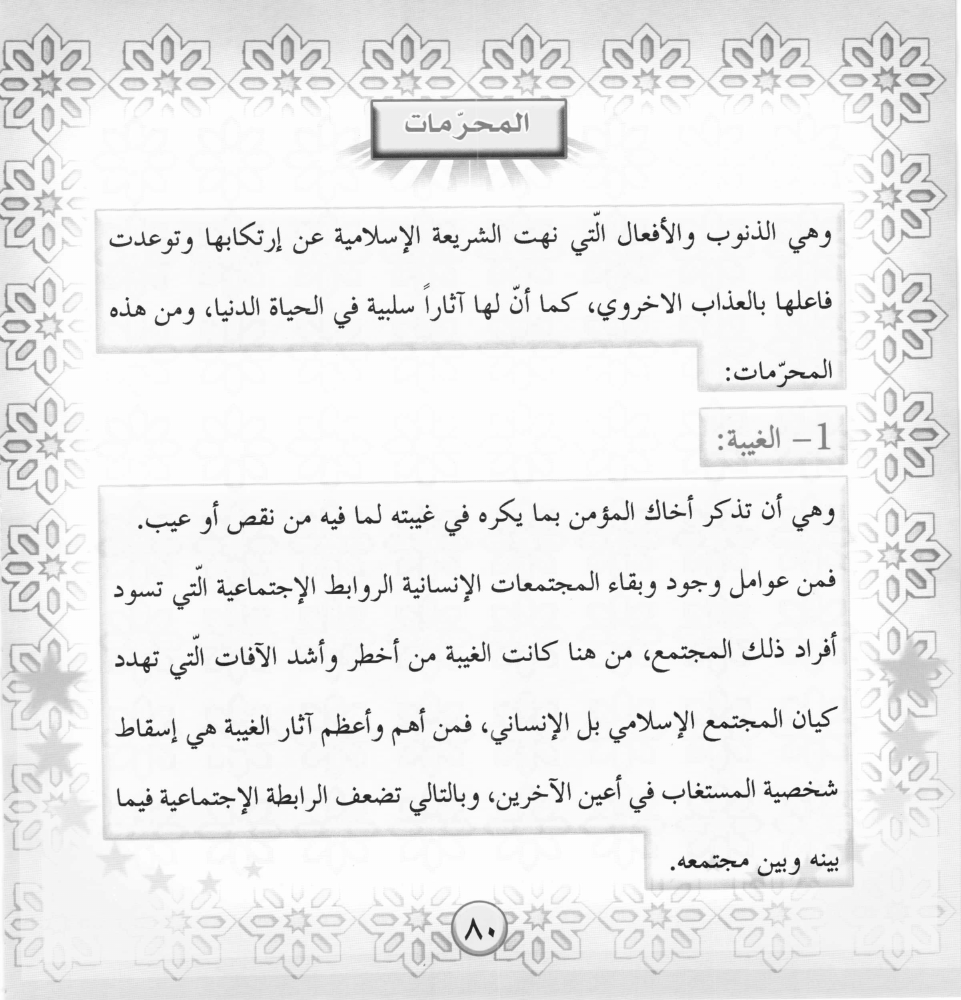 المحرّمات
وهي الذنوب والأفعال الّتي نهت الشريعة الإسلامية عن إرتكابها وتوعدت
فاعلها بالعذاب الاخروي، كما أنّ لها آثاراً سلبية في الحياة الدنيا، ومن هذه
المحرّمات:
1- الغيبة:
وهي أن تذكر أخاك المؤمن بما يكره في غيبته لما فيه من نقص أو عيب.
فمن عوامل وجود وبقاء المجتمعات الإنسانية الروابط الإجتماعية الّتي تسود
أفراد ذلك المجتمع، من هنا كانت الغيبة من أخطر وأشد الآفات الّتي تهدد
كيان المجتمع الإسلامي بل الإنساني، فمن أهم وأعظم آثار الغيبة هي إسقاط
شخصية المستغاب في أعين الآخرين، وبالتالي تضعف الرابطة الإجتماعية فيما
بينه وبين مجتمعه.
٨٠